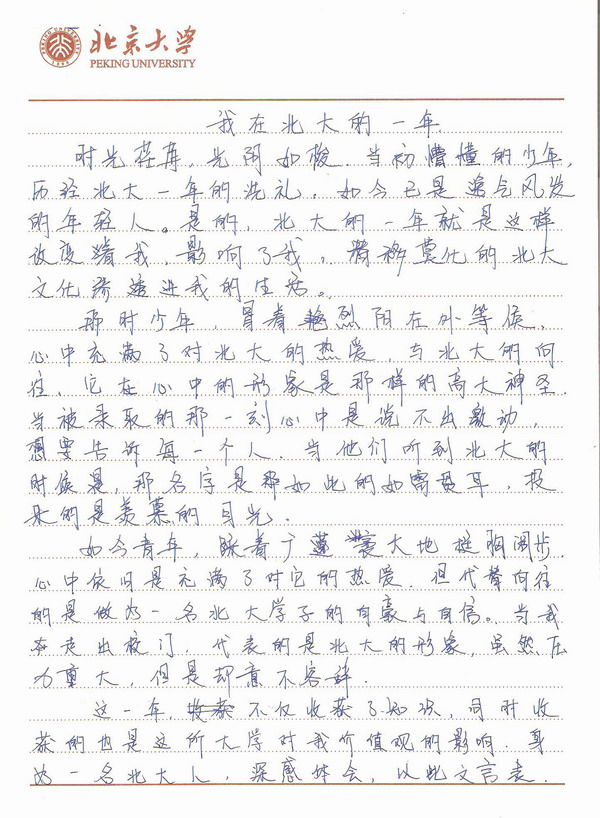 北京大学
PEKING UNIVERSITY
我在北大的一年
时光荏苒,光阴如梭.当初懵懂的少年,
历经北大一年的洗礼,如今已是意气风发
的年轻人。是的,北大的一年就是这样
改变着我,影响了我,潜移莫化的北大
文化渗透进我的生活。
那时少年,冒着烈阳在外等候,
心中充满了对北大的热爱,与北大的向
往,它在心中的形象是那样的高大神圣.
当被录取的那一刻心中是说不出激动,
想要告诉每一个人,当他们听到北大的
时候是,那名字是那如此的如雷贯耳,投
来的是羡慕的目光.
如今青年,踩着广袤大地挺胸阔步,
心中依旧是充满了对它的热爱,但代替向往
的是做为一名北大学子的自豪与自信。当我
在走出校门,代表的是北大的形象,虽然压
力重大,但是却意不容辞.
这一年,不仅收获了知识,同时收
获的也是这所大学对我价值观的影响.身
为一名北大人,深感体会,以此文言表.